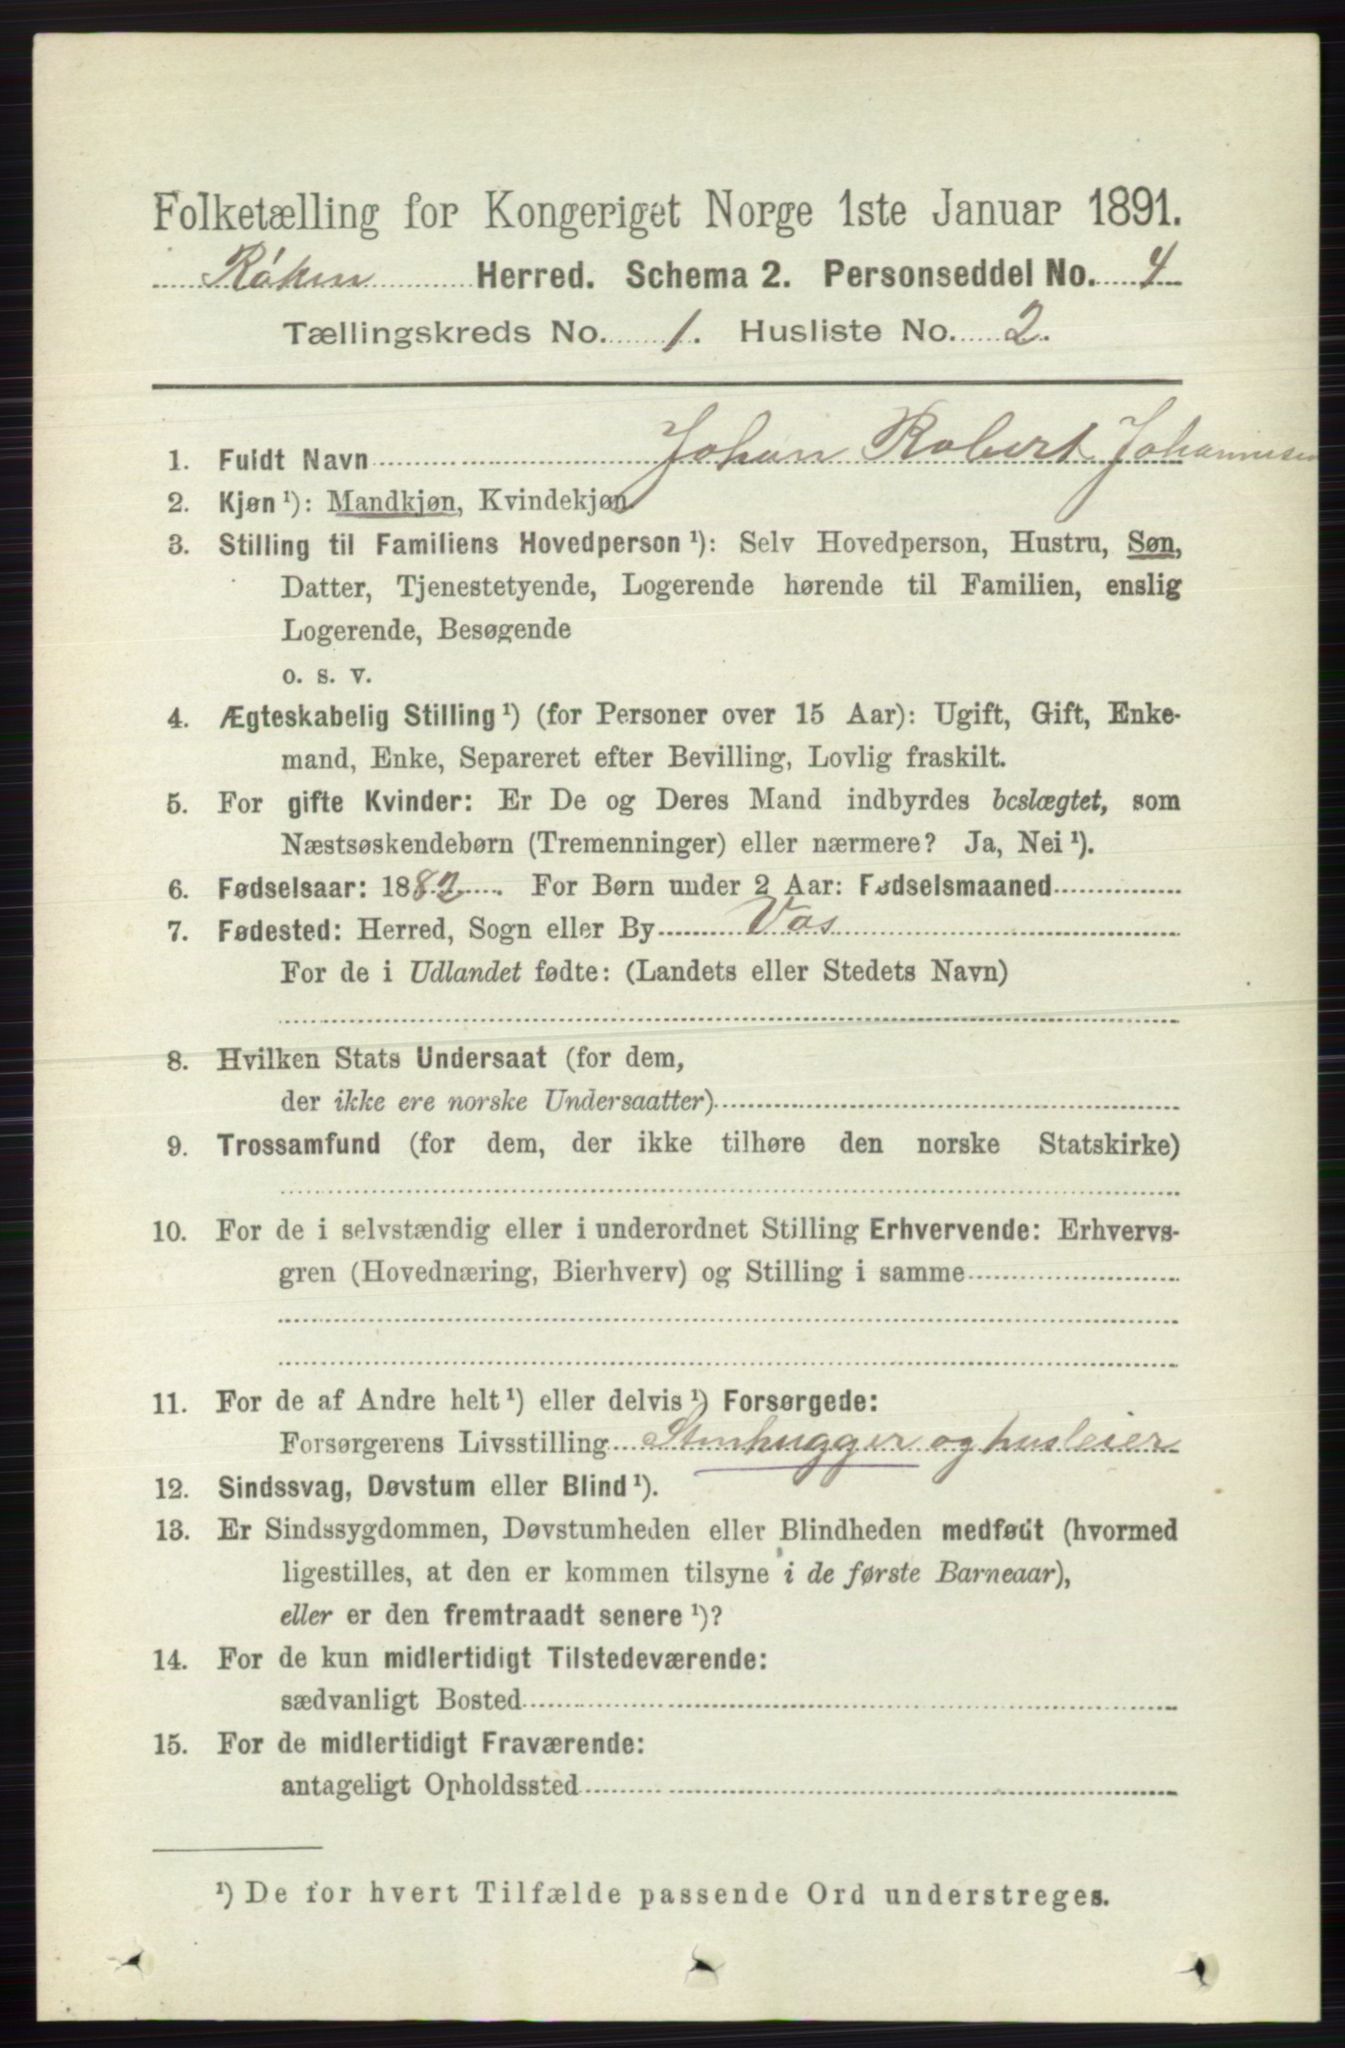 Folketælling for Kongeriget Norge 1ste Januar 1891.
Røken Herred. Schema 2. Personseddel No. 4
Tællingskreds No. 1. Husliste No. 2.
1. Fuldt Navn Johan Robert Johannesen
2. Kjøn ¹): Mandkjøn, Kvindekjøn.
3. Stilling til Familiens Hovedperson ¹): Selv Hovedperson, Hustru, Søn,
Datter, Tjenestetyende, Logerende hørende til Familien, enslig
Logerende, Besøgende
o. s. v.
4. Ægteskabelig Stilling ¹) (for Personer over 15 Aar): Ugift, Gift, Enke-
mand, Enke, Separeret efter Bevilling, Lovlig fraskilt.
5. For gifte Kvinder: Er De og Deres Mand indbyrdes beslægtet, som
Næstsøskendebørn (Tremenninger) eller nærmere? Ja, Nei ¹).
6. Fødselsaar: 1882. For Børn under 2 Aar: Fødselsmaaned
7. Fødested: Herred, Sogn eller By Vas
For de i Udlandet fødte: (Landets eller Stedets Navn)
8. Hvilken Stats Undersaat (for dem,
der ikke ere norske Undersaatter)
9. Trossamfund (for dem, der ikke tilhøre den norske Statskirke)
10. For de i selvstændig eller i underordnet Stilling Erhvervende: Erhvervs-
gren (Hovednæring, Bierhverv) og Stilling i samme
11. For de af Andre helt ¹) eller delvis ¹) Forsørgede:
Forsørgerens Livsstilling Stenhugger og husleier
12. Sindssvag, Døvstum eller Blind ¹).
13. Er Sindssygdommen, Døvstumheden eller Blindheden medfødt (hvormed
ligestilles, at den er kommen tilsyne i de første Barneaar),
eller er den fremtraadt senere ¹)?
14. For de kun midlertidigt Tilstedeværende:
sædvanligt Bosted
15. For de midlertidigt Fraværende:
antageligt Opholdssted
¹) De for hvert Tilfælde passende Ord understreges.